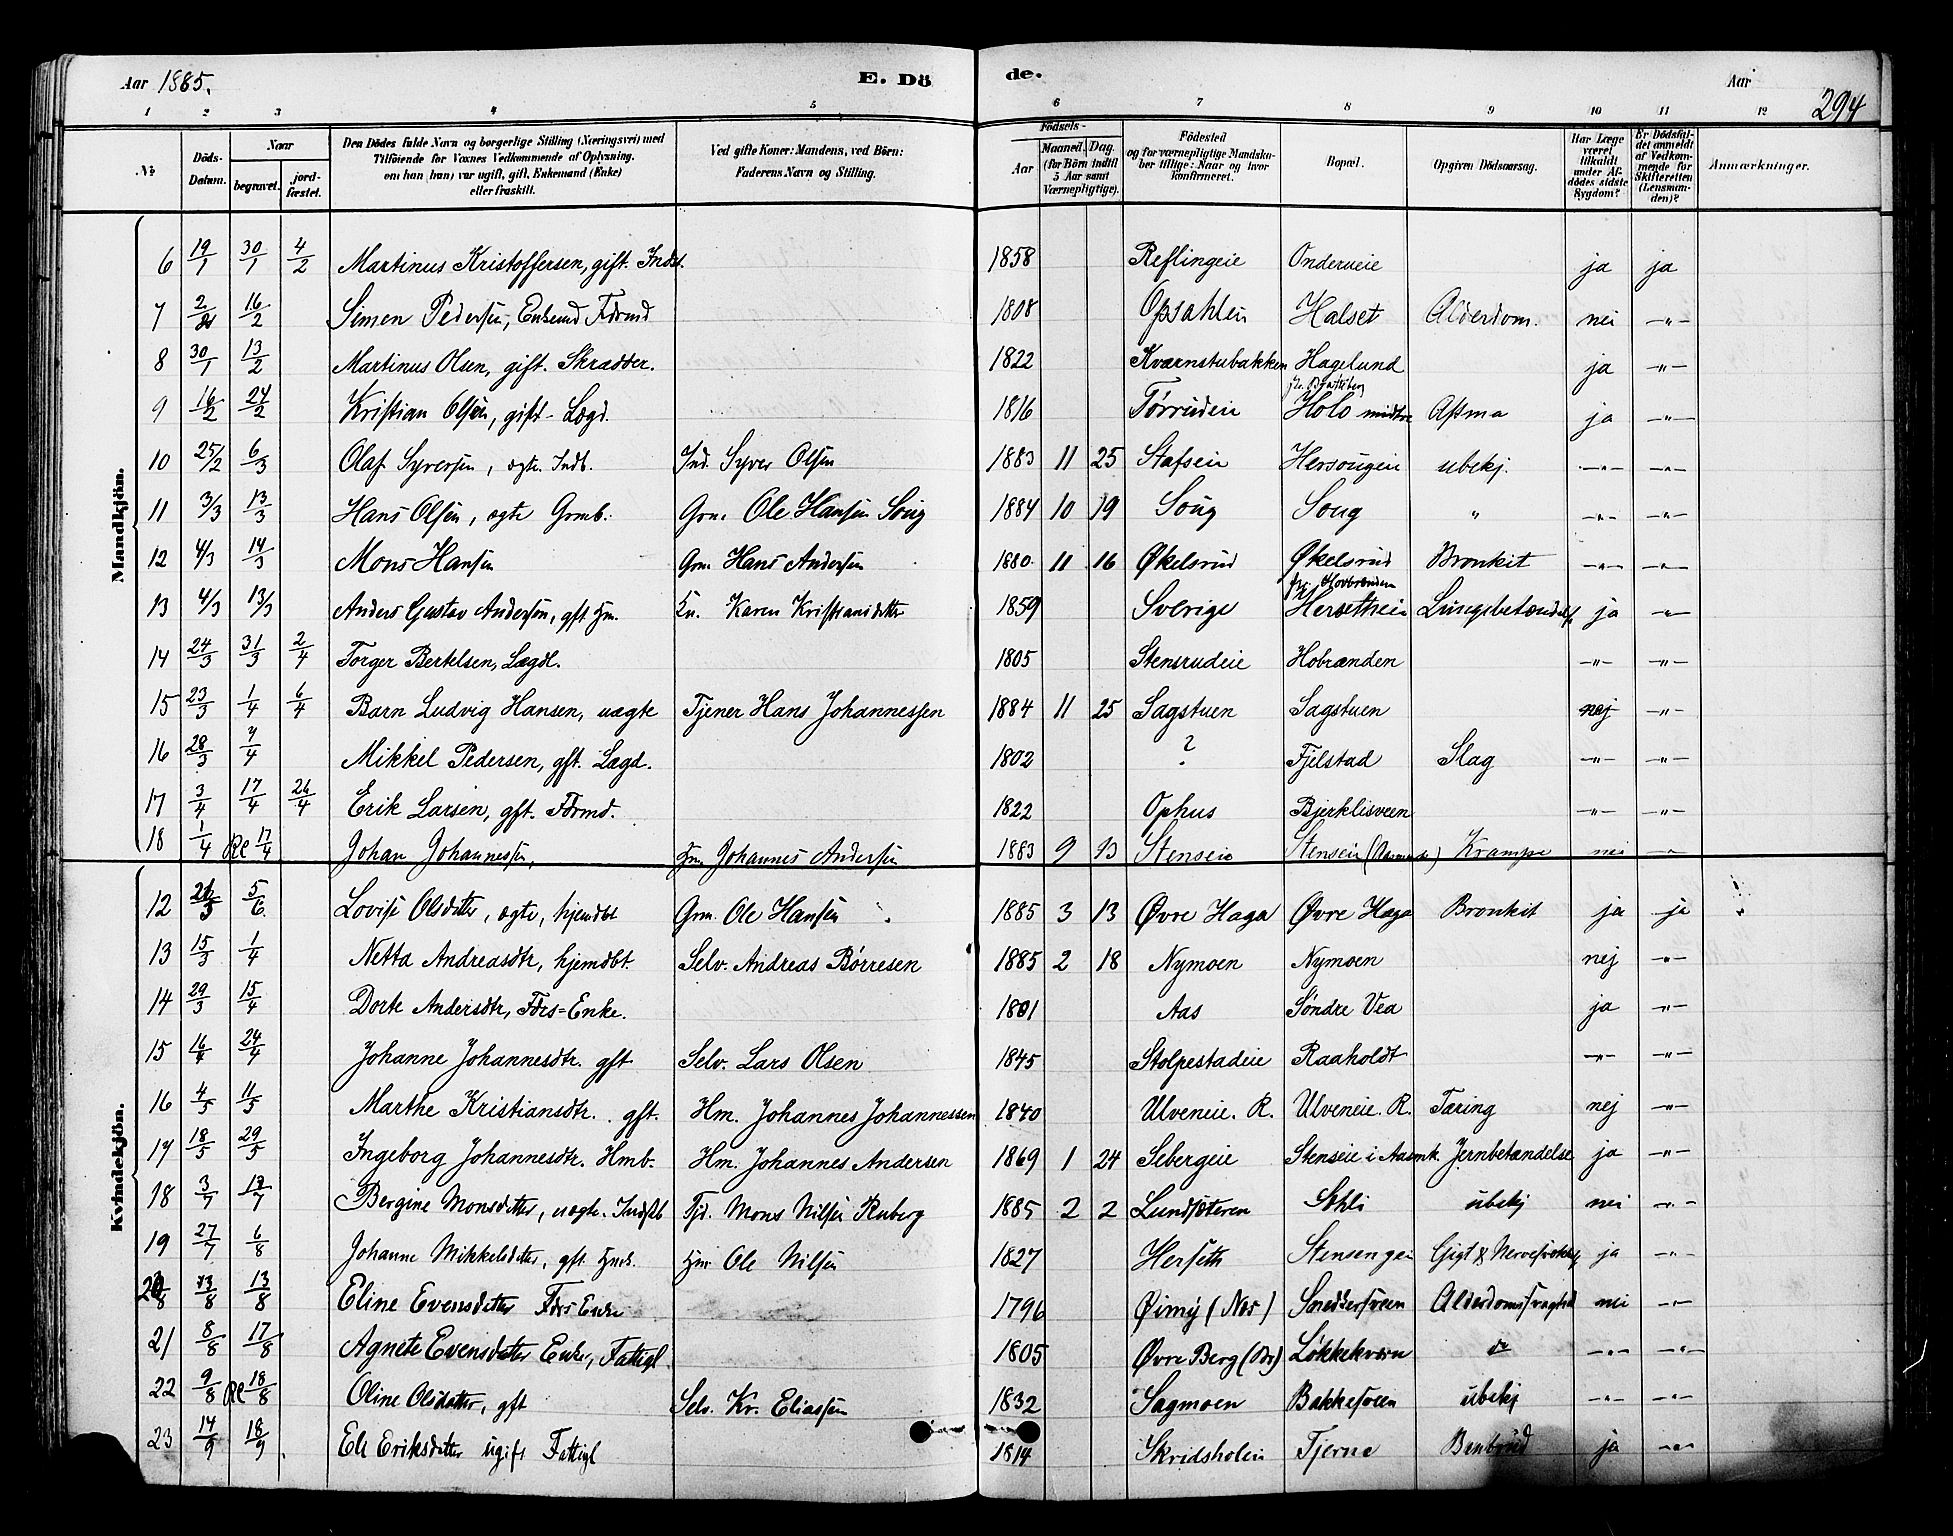 Aar 1885. E. Dö de. Aar 294
1 2 3 4 5 6 7 8 9 10 11 12
No. Döds-Datum. Naar begravet. jordfæstet. Den Dödes fulde Navn og borgerlige Stilling (Næringsvei) med Tilföiende for Voxnes Vedkommende af Oplysning, om han (hun) var ugift, gift, Enkemand (Enke) eller fraskilt. Ved gifte Koner: Mandens, ved Börn: Faderens Navn og Stilling. Födsels- Aar Maaned. Dag. (for Börn indtil 5 Aar samt Værnepligtige). Födested og for værnepligtige Mandskaber tillige: Naar og hvor konfirmeret. Bopæl. Opgiven Dödsaarsag. Har Læge været tilkaldt under Afdödes sidste Sygdom? Er Dödsfaldet anmeldt af Vedkommende for Skifteretten (Lensmanden)? Anmærkninger.
Mandkjön.
6 19/1 30/1 4/2 Martinus Kristoffersen, gift. Indst. 1858 Reflingeie Onderueie ja ja
7 2/2 16/2 Simen Pedersen, Enkemd Fdrmd 1808 Opsahlen Halset Alderdom. nei -"-
8 30/1 13/2 Martinus Olsen, gift. Skrædder. 1822 Kværnstubakken Hagelund ja -"-
9 16/2 24/2 Kristian Olsen, gift - Lægd. 1816 Tørrudeie Holo midtre Astma ja -"-
10 25/2 6/3 Olaf Syversen, ægte. Indb. Ind. Syver Olsen 1883 11 25 Stafsein Hersougen ubekj. -"- -"-
11 3/3 13/3 Hans Olsen, ægte Grmb. Grm. Ole Hansen Soug 1884 10 19 Soug Soug " -"- -"-
12 4/3 14/3 Mons Hansen Grm. Hans Andersen 1880 11 16 Økelsrud Økelsrud Bronkit -"- -"-
13 4/3 13/3 Anders Gustav Andersen, gft Hm. Ku. Karen Kristiansdatter 1859 Sverige Hersetheie Lungebetændelse ja -"-
14 24/3 31/3 2/4 Torger Bertelsen, Lægdl. 1805 Stensrudeie Hobrænden -"- -"-
15 23/3 1/4 6/4 Barn Ludvig Hansen, uægte Tjener Hans Johannessen 1884 11 25 Sagstuen Sagstuen nej -"-
16 28/3 7/4 Mikkel Pedersen, gft. Lægd. 1802 ? Fjelstad Slag -"- -"-
17 3/4 17/4 26/4 Erik Larsen, gft. Fdrmd. 1822 Ophus Bjerklisveen -"- -"-
18 1/4 Re 17/4 Johan Johannessen, Hm. Johannes Andersen 1883 9 13 Stenseie Stenseie Krampe nei -"-
Kvindekjön.
12 5/6 Lovise Olsdatter, ægte, hjemdbt Grm. Ole Hansen 1885 3 13 Øvre Haga Øvre Haga Bronkit ja ja
13 15/3 1/4 Netta Andreasdtr, hjemdbt. Selv. Andreas Børresen 1885 2 18 Nymoen Nymoen nej -"-
14 29/3 15/4 Dorte Andersdtr, Fdrs=Enke. 1801 Aas Søndre Vea ja -"-
15 16/4 24/4 Johanne Johannesdtr. gft Selv. Lars Olsen 1845 Stolpestadeie Raaholdt -"- -"-
16 4/5 11/5 Marthe Kristiansdtr. gft. Hm. Johannes Johannessen 1840 Ulveneie. R. Ulveneie. R. Tæring nej -"-
17 18/5 29/5 Ingeborg Johannesdtr. Hmb. Hm. Johannes Andersen 1869 1 24 Sebergeie Stenseie i Aasmk. Jernbetændelse ja -"-
18 3/7 17/7 Bergine Monsdatter, uægte. Indstb Tjd. Mons Nilsen Ruberg 1885 2 2 Lundsæteren Sohli ubekj nei -"-
19 27/7 6/8 Johanne Mikkelsdatter, gft. Hm. Hm Ole Nilsen 1827 Herseth Stensengen Gigt & Nervesvækkelse ja -"-
20 13/8 Eline Evensdatter Fdrs Enke 1796 Øimy (Nes) Snedkersveen Alderdomssvaghed nei -"-
21 8/8 17/8 Agnete Evensdatter Enke, Fattigl. 1805 Øvre Berg Løkkekværn do -"- -"-
22 9/8 Re 18/8 Oline Olsdatter, gft Selv. Kr. Eliassen 1832 Sagmoen Bakkesveen ubekj -"- -"-
23 14/9 18/9 Eli Eriksdatter ugift Fattigl 1814 Skridsholen Tjerne Benbrud ja -"-